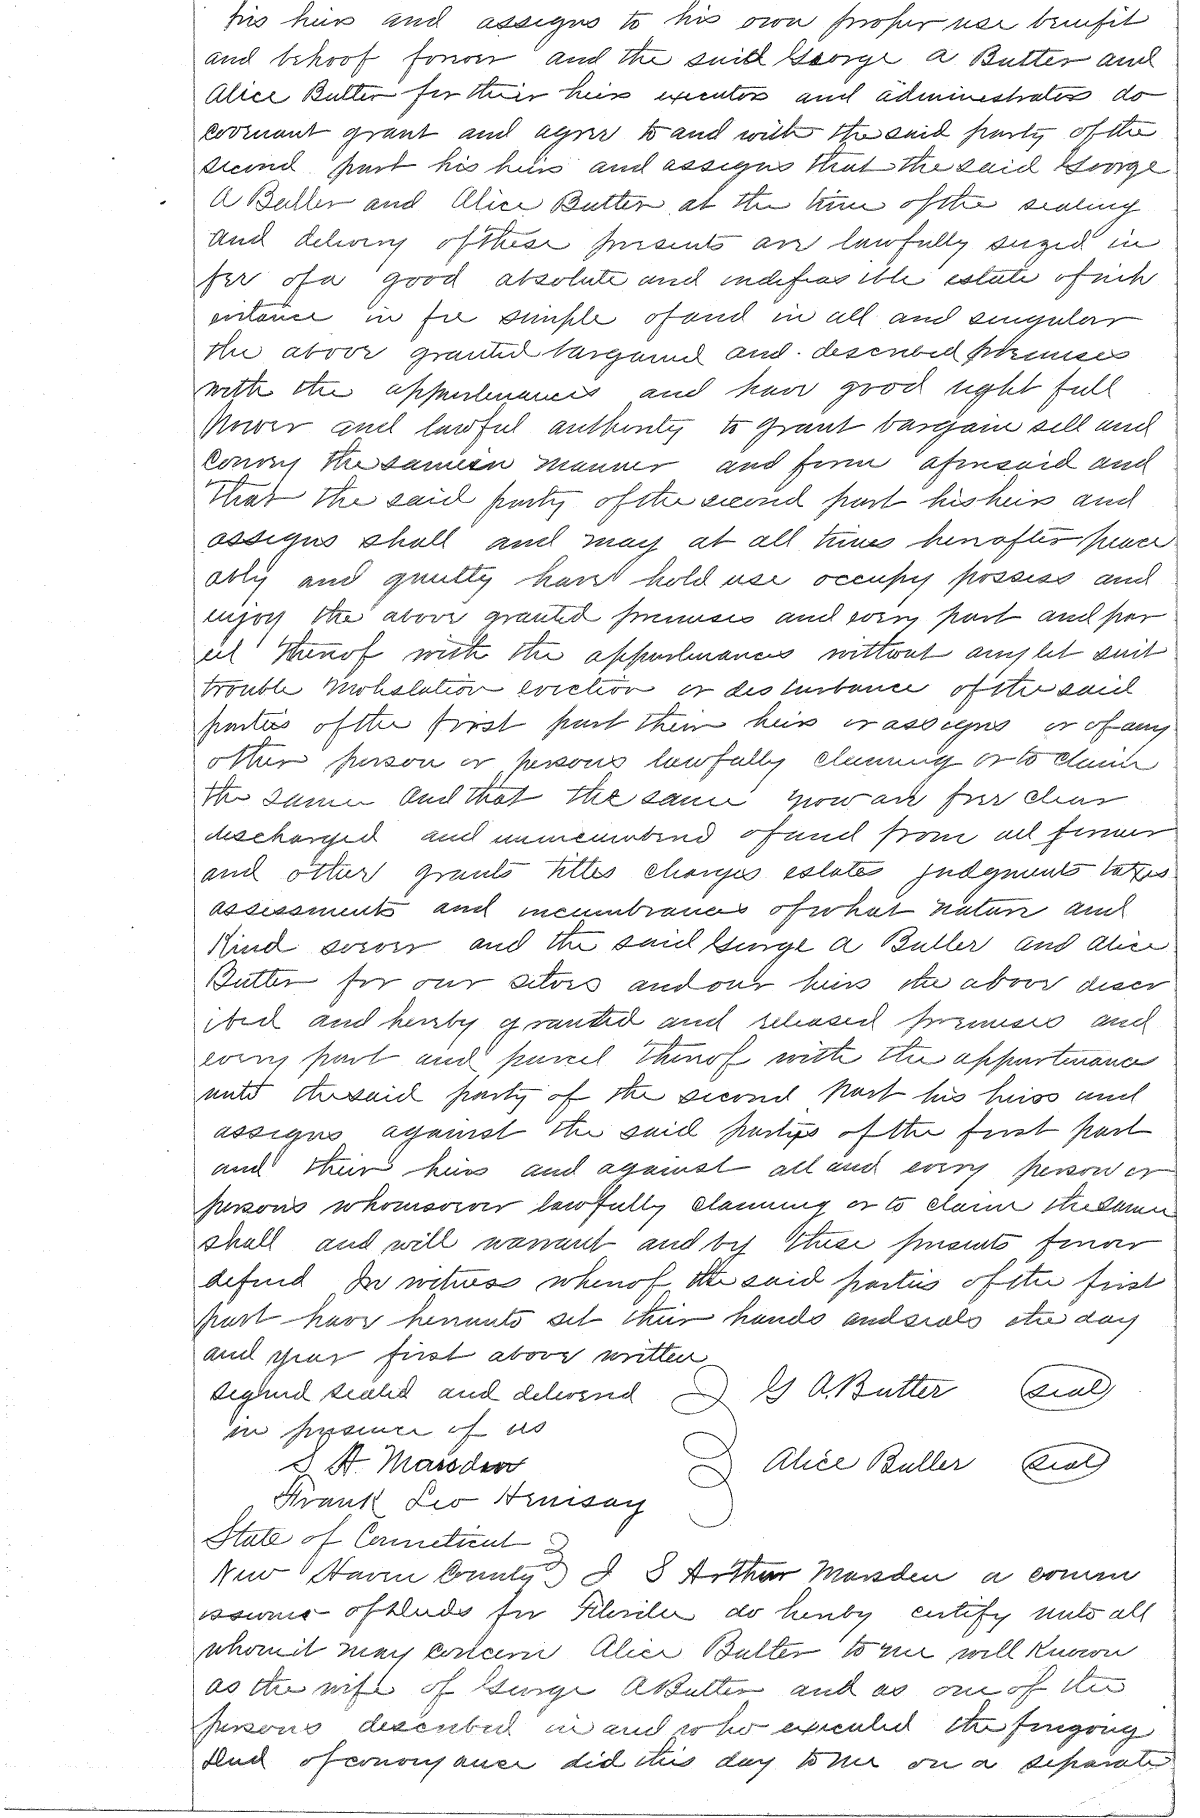 his heirs and assigns to his own proper use benefit
and behoof forever and the said George A Butler and
Alice Butler for their heirs executors and administrators do
covenant grant and agree to and with the said party of the
second part his heirs and assigns that the said George
A Butler and Alice Butler at the time of the sealing
and delivery of these presents are lawfully seized in
fee of a good absolute and indefeasible estate of inh
eritance in fee simple of and in all and singular
the above granted bargained and described premises
with the appurtenances and have good right full
Power and lawful authority to grant bargain sell and
convey the same in manner and form aforesaid and
that the said party of the second part his heirs and
assigns shall and may at all times hereafter peace
ably and quietly have hold use occupy possess and
enjoy the above granted premises and every part and par
cel thereof with the appurtenances without any let suit
trouble molestation eviction or disturbance of the said
parties of the first part their heirs or assigns or of any
other person or persons lawfully claiming or to claim
the same and that the same now are free clear
discharged and unincumbered of and from all former
and other grants titles charges estates judgments taxes
assessments and incumbrances of what nature and
kind soever and the said George A Butler and Alice
Butler for our selves and our heirs the above descr
ibed and hereby granted and released premises and
every part and parcel thereof with the appurtenance
unto the said party of the second part his heirs and
assigns against the said parties of the first part
and their heirs and against all and every person or
persons whomsoever lawfully claiming or to claim the same
shall and will warrant and by these presents forever
defend In witness whereof the said parties of the first
part have hereunto set their hands and seals the day
and year first above written
Signed sealed and delivered G A. Butler (seal)
in presence of us
S A. Marsden Alice Butler (seal)
Frank Leo
State of Conneticut
New Haven County I S Arthur Marsden a comm
issioner of Deeds for Florida do hereby certify unto all
whom it may concern Alice Butler to me well known
as the wife of George A Butler and as one of the
persons described in and who executed the foregoing
deed of conveyance did this day to me on a separate